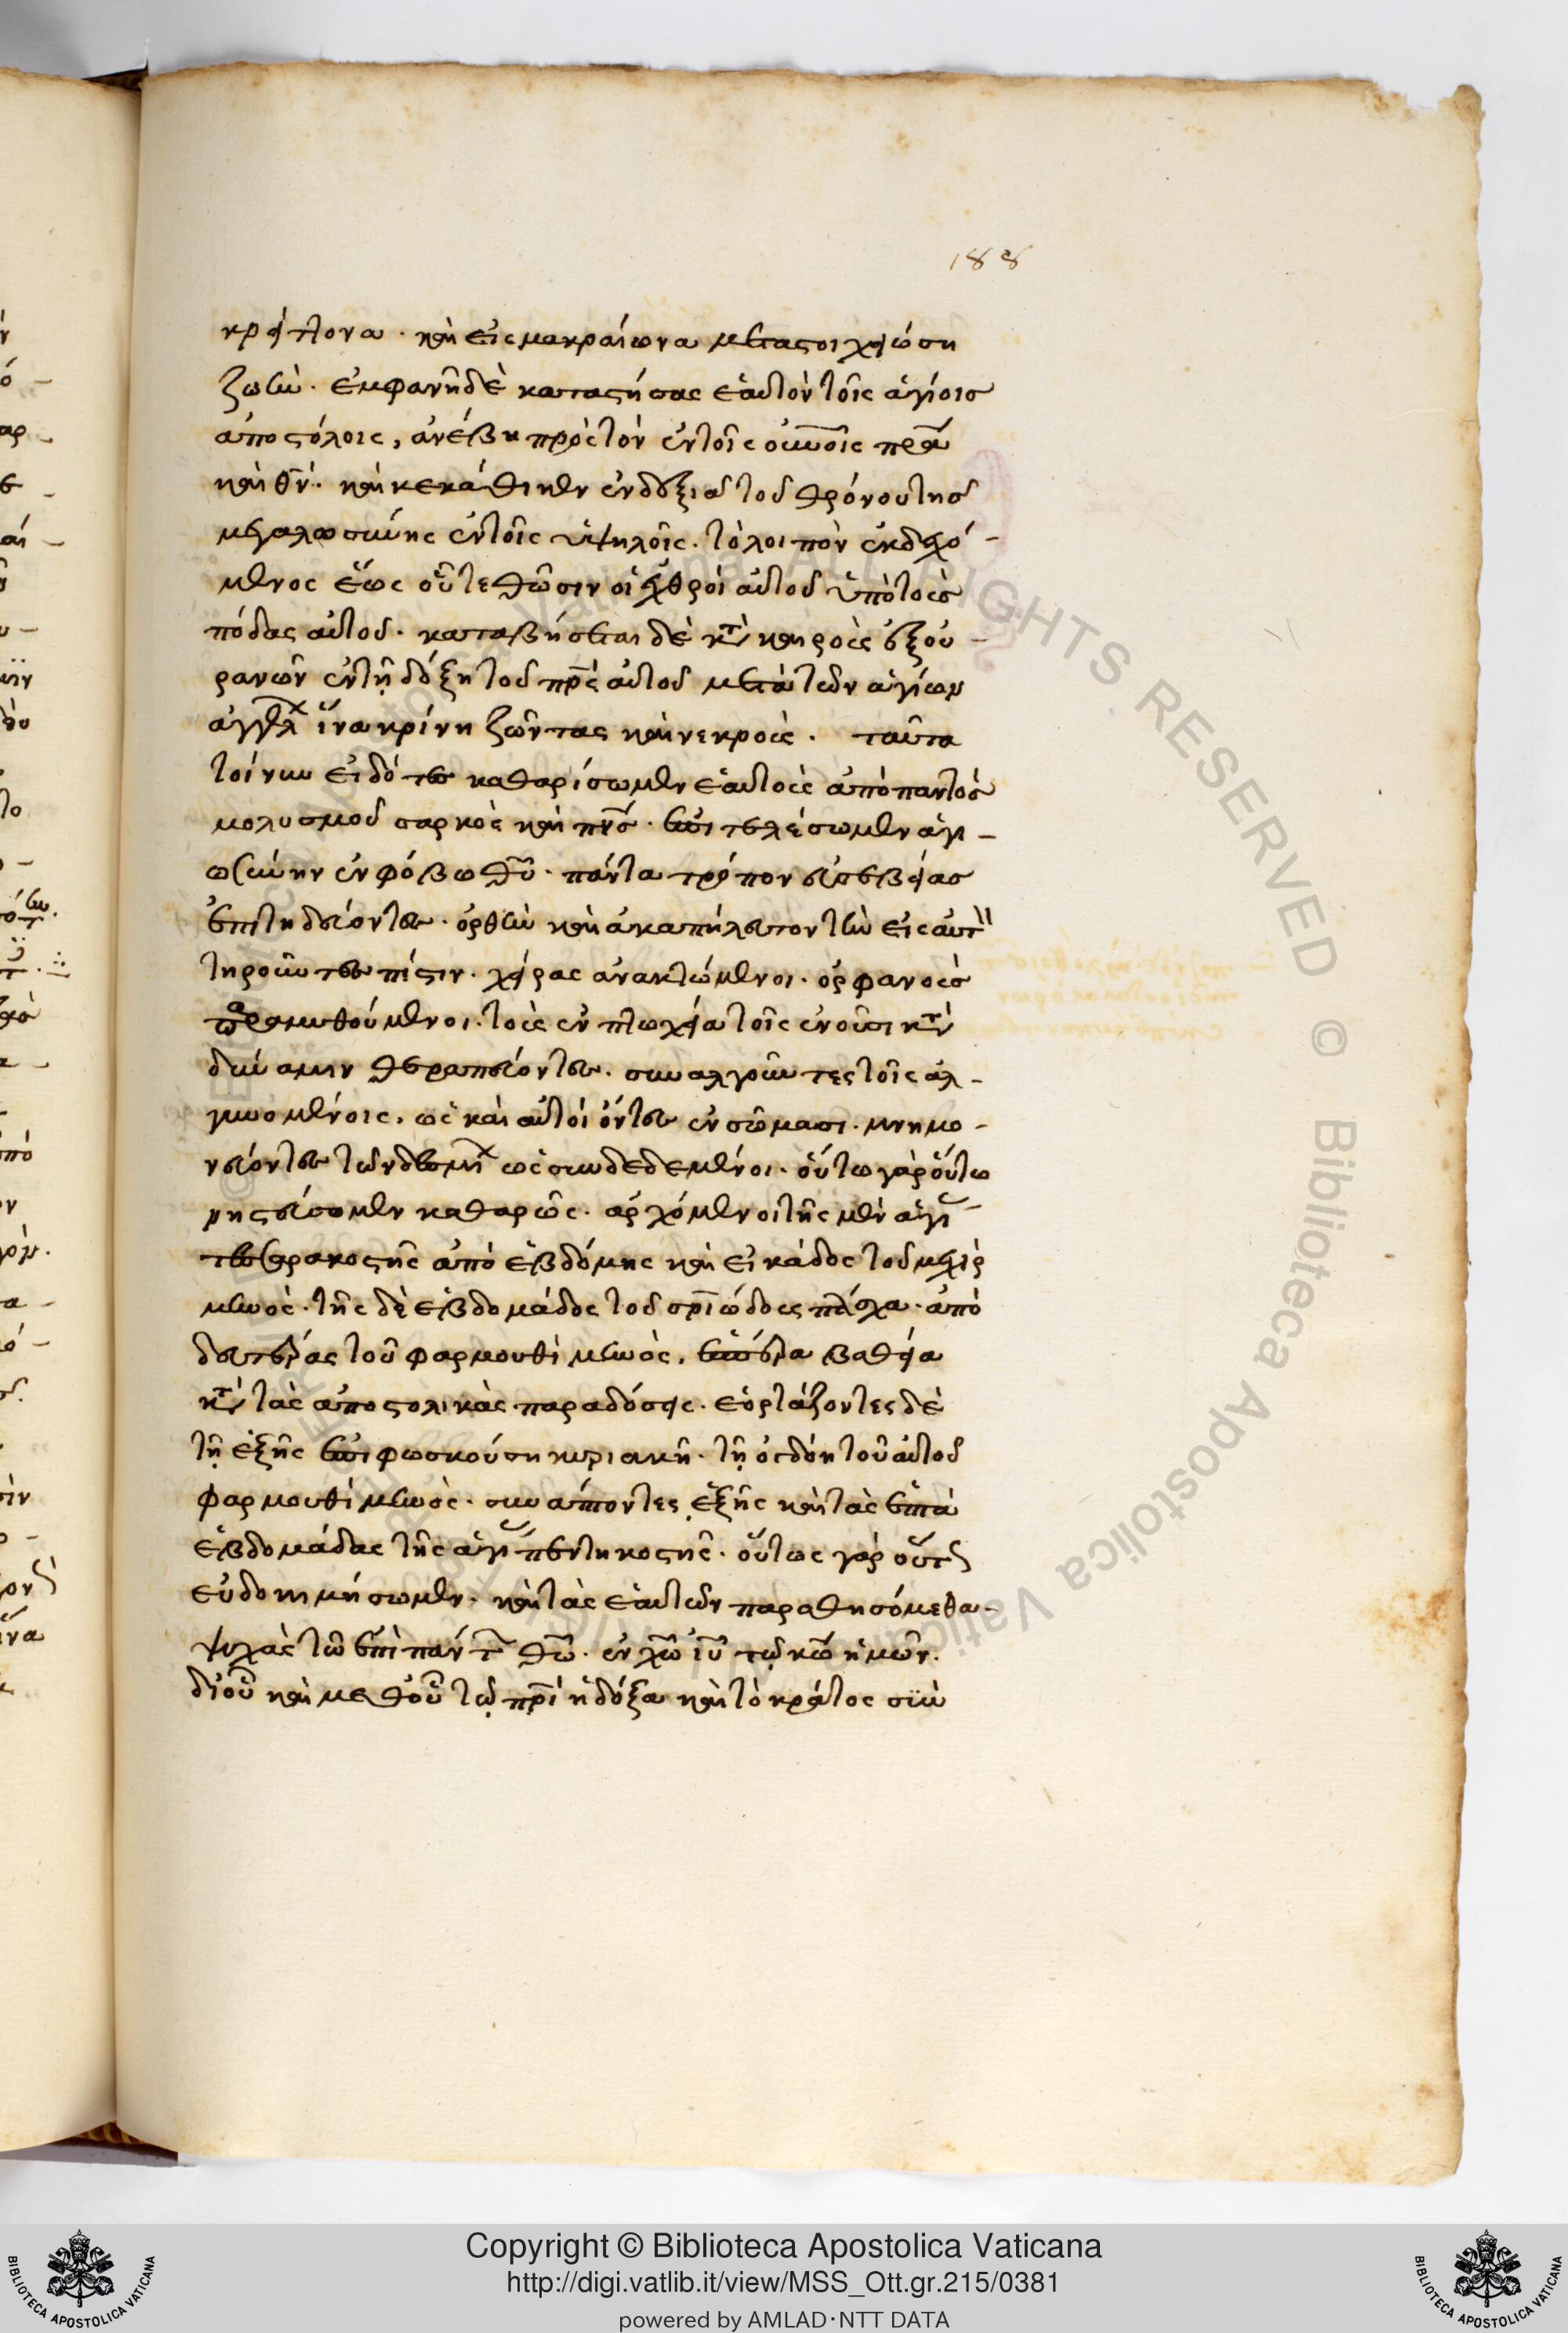 188
κρείττονα. καὶ εἰς μακραίωνα μεταστοιχειώση
ζωήν. ἐμφανῆ δὲ καταστήσας ἑαυτὸν τοῖς ἁγίοις
ἀποστόλοις, ἀνέβη πρὸς τὸν ἐν τοῖς οὐνοῖς πρα
καὶ θν. καὶ κεκάθικεν ἐν δεξιᾶ τοῦ θρόνου τῆς
μεγαλωσύνης ἐν τοῖς ὑψηλοῖς. τὸ λοιπὸν ἐκδεχό-
μενος ἕως οὗ τεθῶσιν οἱ ἐχθροὶ αὐτοῦ ὑπὸ τοὺς
πόδας αὐτοῦ. καταβήσεται δὲ κτ καιροὺς ἐξ οὐ-
ρανῶν ἐν τῆ δόξη τοῦ πρς αὐτοῦ μετὰ τῶν ἁγίων
ἀγγέλ ἵνα κρίνη ζῶντας καὶ νεκρούς. ταῦτα
τοίνυν εἰδότες καθαρίσωμεν ἑαυτοὺς ἀπὸ παντὸς
μολυσμοῦ σαρκὸς καὶ πνς. ἐπιτελέσωμεν ἁγι-
ωσύνην ἐν φόβω θυ. πάντα τρόπον εὐσεβείας
ἐπιτηδεύοντες. ὀρθὴν καὶ ἀκαπήλευτον τὴν εἰς αὐτ
τηροῦντες πίστιν. χήρας ἀνακτώμενοι. ὀρφανοὺς
παραμυθούμενοι. τοὺς ἐν πτωχεία τοῖς ἐνοῦσι κτ
δύναμιν θεραπεύοντες. συναλγοῦντες τοῖς ἀλ-
γυνομένοις. ὡς καὶ αὐτοὶ ὄντες ἐν σώμασι. μνημο-
νεύοντες τῶν δεσμι ὡς συνδεδεμένοι. οὕτω γὰρ οὕτω
νηστεύσομεν καθαρῶς. ἀρχόμενοι τῆς μὲν ἁγι
τεσσαρακοστῆς ἀπὸ ἑβδόμης καὶ εἰκάδος τοῦ μεχὶρ
μηνός. τῆς δὲ ἑβδομάδος τοῦ σρἱώδους πάσχα. ἀπὸ
δευτέρας τοῦ φαρμουθὶ μηνός, ἑσπέρα βαθεία
κτ τὰς ἀποστολικὰς παραδόσεις. ἑορτάζοντες δὲ
τῆ ἑξῆς ἐπιφωσκούση κυριακῆ. τῆ ὀγδόη τοῦ αὐτοῦ
φαρμουθὶ μηνός. συνάπτοντες ἑξῆς καὶ τὰς ἑπτὰ
ἑβδομάδας τῆς ἁγι πεντηκοστῆς. οὕτως γὰρ οὕτς
εὐδοκιμήσωμεν. καὶ τὰς ἑαυτῶν παραθησόμεθα-
ψυχὰς τῶ ἐπὶ πάντ θω. ἐν χω ιυ τῷ κω ἡμῶν.
δι' οὗ καὶ μεθ' οὗ τῷ πρι ἡ δόξα καὶ τὸ κράτος σὺν
Copyright © Biblioteca Apostolica Vaticana
http://digi.vatlib.it/view/MSS_Ott.gr.215/0381
powered by AMLAD·NTT DATA
BIBLIOTECA APOSTOLICA VATICANA
BIBLIOTECA APOSTOLICA VATICANA